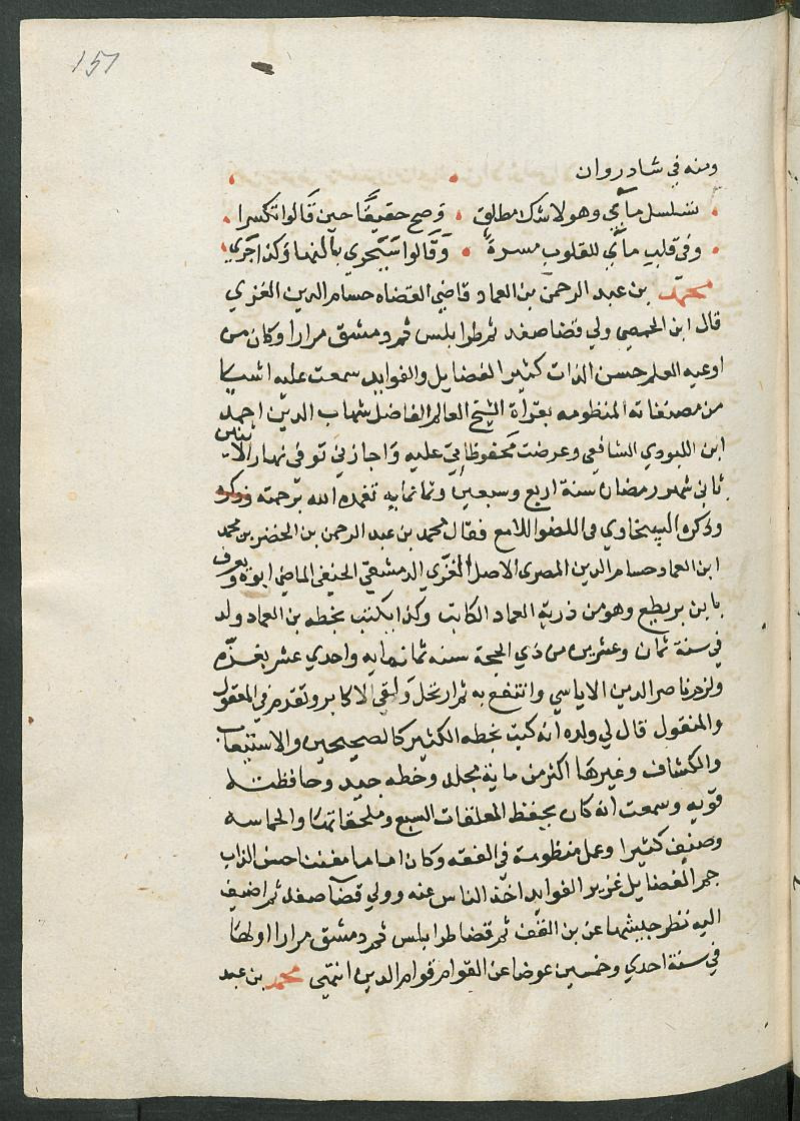 157
ومنه في شادروان
تسلسل مآي وهو لا شك مطلق . وصح حقيقا حين قالوا تكسرا
وفي قلب مآي للقلوب مسرة . وقالوا سيجري بالهنا وكذا جري
محمد بن عبد الرحمن بن العماد قاضي القضاه حسام الدين الغزي
قال ابن الحمصي ولي قضا صفد ثم طرابلس ثم دمشق مرارا وكان من
اوعيه العلم حسن الذات كثير الفضايل والفوايد سمعت عليه اشيا
من مصنفاته المنظومه بقراة الشيخ العالم الفاضل شهاب الدين احمد
ابن اللبودي الشافعي وعرضت محفوظاتي عليه واجازني توفي نهار الاثنين
ثاني شهر رمضان سنة اربع وسبعين وثمانمايه تغمده الله برحمته
وذكره السخاوي في الضو اللامع فقال محمد بن عبد الرحمن بن الخضر بن محمد
ابن العماد حسام الدين المصري الاصل الغزي الدمشقي الحنفي الماضي ابوه ويعرف
بابن بريطع وهو من ذرية العماد الكاتب وكذا يكتب بخطه بن العماد ولد
في سنة ثمان وعشرين من ذي الحجة سنه ثمانمايه واحدي عشر بغزه
ولزم ناصر الدين الاياسي وانتفع به ثم ارتحل ولقي الاكابر وتقدم في المعقول
والمنقول قال لي ولده انه كتب بخطه الكثير كالصحيحين والاستيعاب
والكشاف وغيرها اكثر من ماية مجلد وخطه جيد وحافظته
قويه وسمعت انه كان يحفظ المعلقات السبع وملحقاتها والحماسه
وصنف كثيرا وعمل منظومة في الفقه وكان اماما مفننا حسن الذات
جم الفضايل غزير الفوايد اخذ الناس عنه وولي قضآ صفد ثم اضيف
اليه نظر جيشها عن بن القف ثم قضا طرابلس ثم دمشق مرارا اولها
في سنة احدي وخمسين عوضا عن القوام قوام الدين انتهي محمد بن عبد